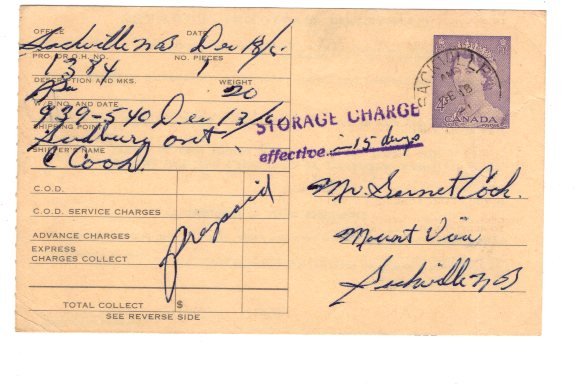 OFFICE DATE
Sackville NB Dec 18/
PRO. OR O.H. NO. NO. PIECES
1384 1
DESCRIPTION AND MKS. WEIGHT
20
W.B. NO. AND DATE
939-540 Dec 13/
SHIPPING POINT
Sudbury Ont
SHIPPER'S NAME
C Cook
C.O.D.
C.O.D. SERVICE CHARGES
ADVANCE CHARGES
EXPRESS
CHARGES COLLECT
TOTAL COLLECT $
SEE REVERSE SIDE
prepaid
STORAGE CHARGE
effective in 15 days
SACKVILLE
AM
DE 18
CANADA
Mr. Garnet Cook.
Mount View
Sackville NB